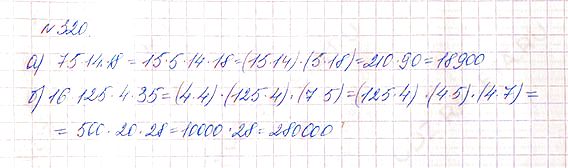 №320.
а) 75·14·18 = 15·5·14·18 = (15·14)·(5·18) = 210·90 = 18900
б) 16·125·4·35 = (4·4)·(125·4)·(7·5) = (125·4)·(4·5)·(4·7) =
= 500·20·28 = 10000·28 = 280000